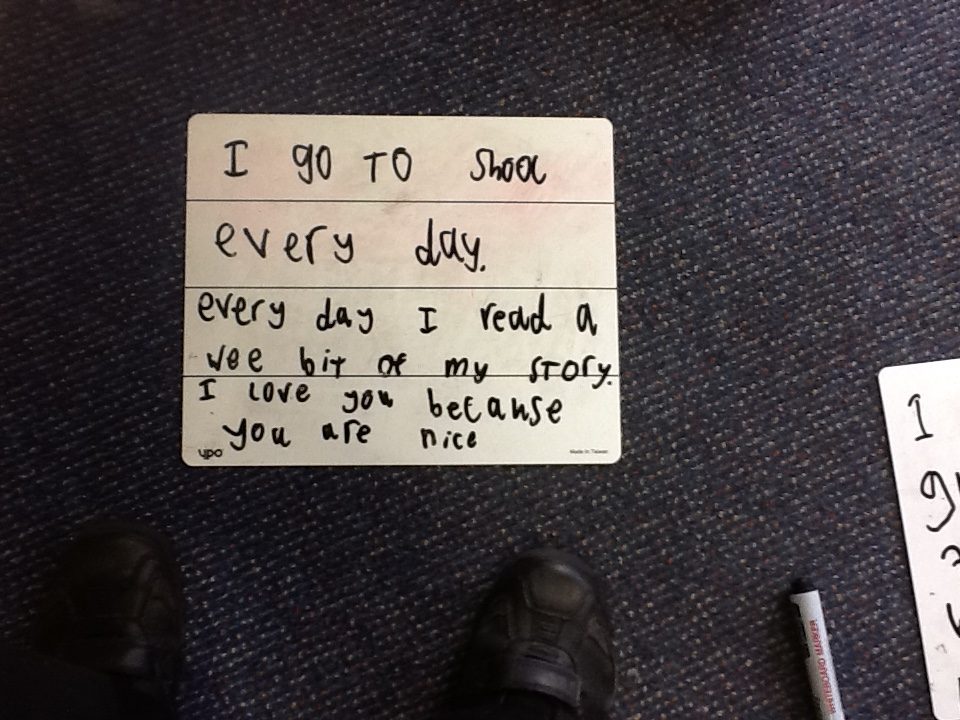 I go TO Shool
every day.
every day I read a
wee bit of my story.
I love you because
you are nice
ypo
Made in Taiwan
I